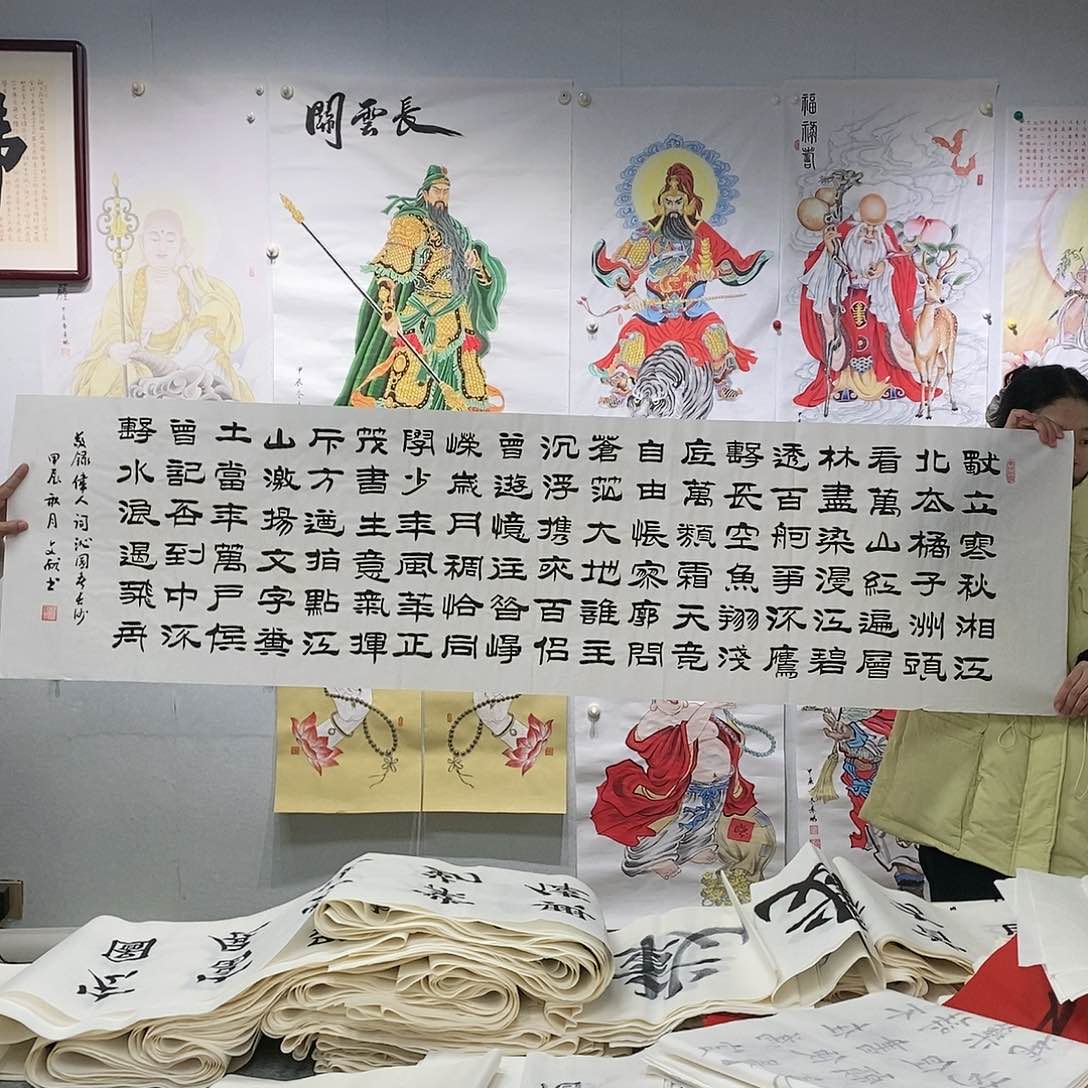 關雲長
福祿壽
獨立寒秋湘江
北去橘子洲頭
看萬山紅遍層
林盡染漫江碧
透百舸爭流鷹
擊長空魚翔淺
底萬類霜天竞
自由悵寥廓問
蒼茫大地誰主
沉浮携來百侣
曾遊憶往昔崢
嶸歲月稠恰同
學少年風華正
茂書生意氣揮
斥方遒指點江
山激揚文字糞
土當年萬户侯
曾記否到中流
擊水浪遏飛舟
敬錄偉人词沁園春長沙
甲辰秋月 书